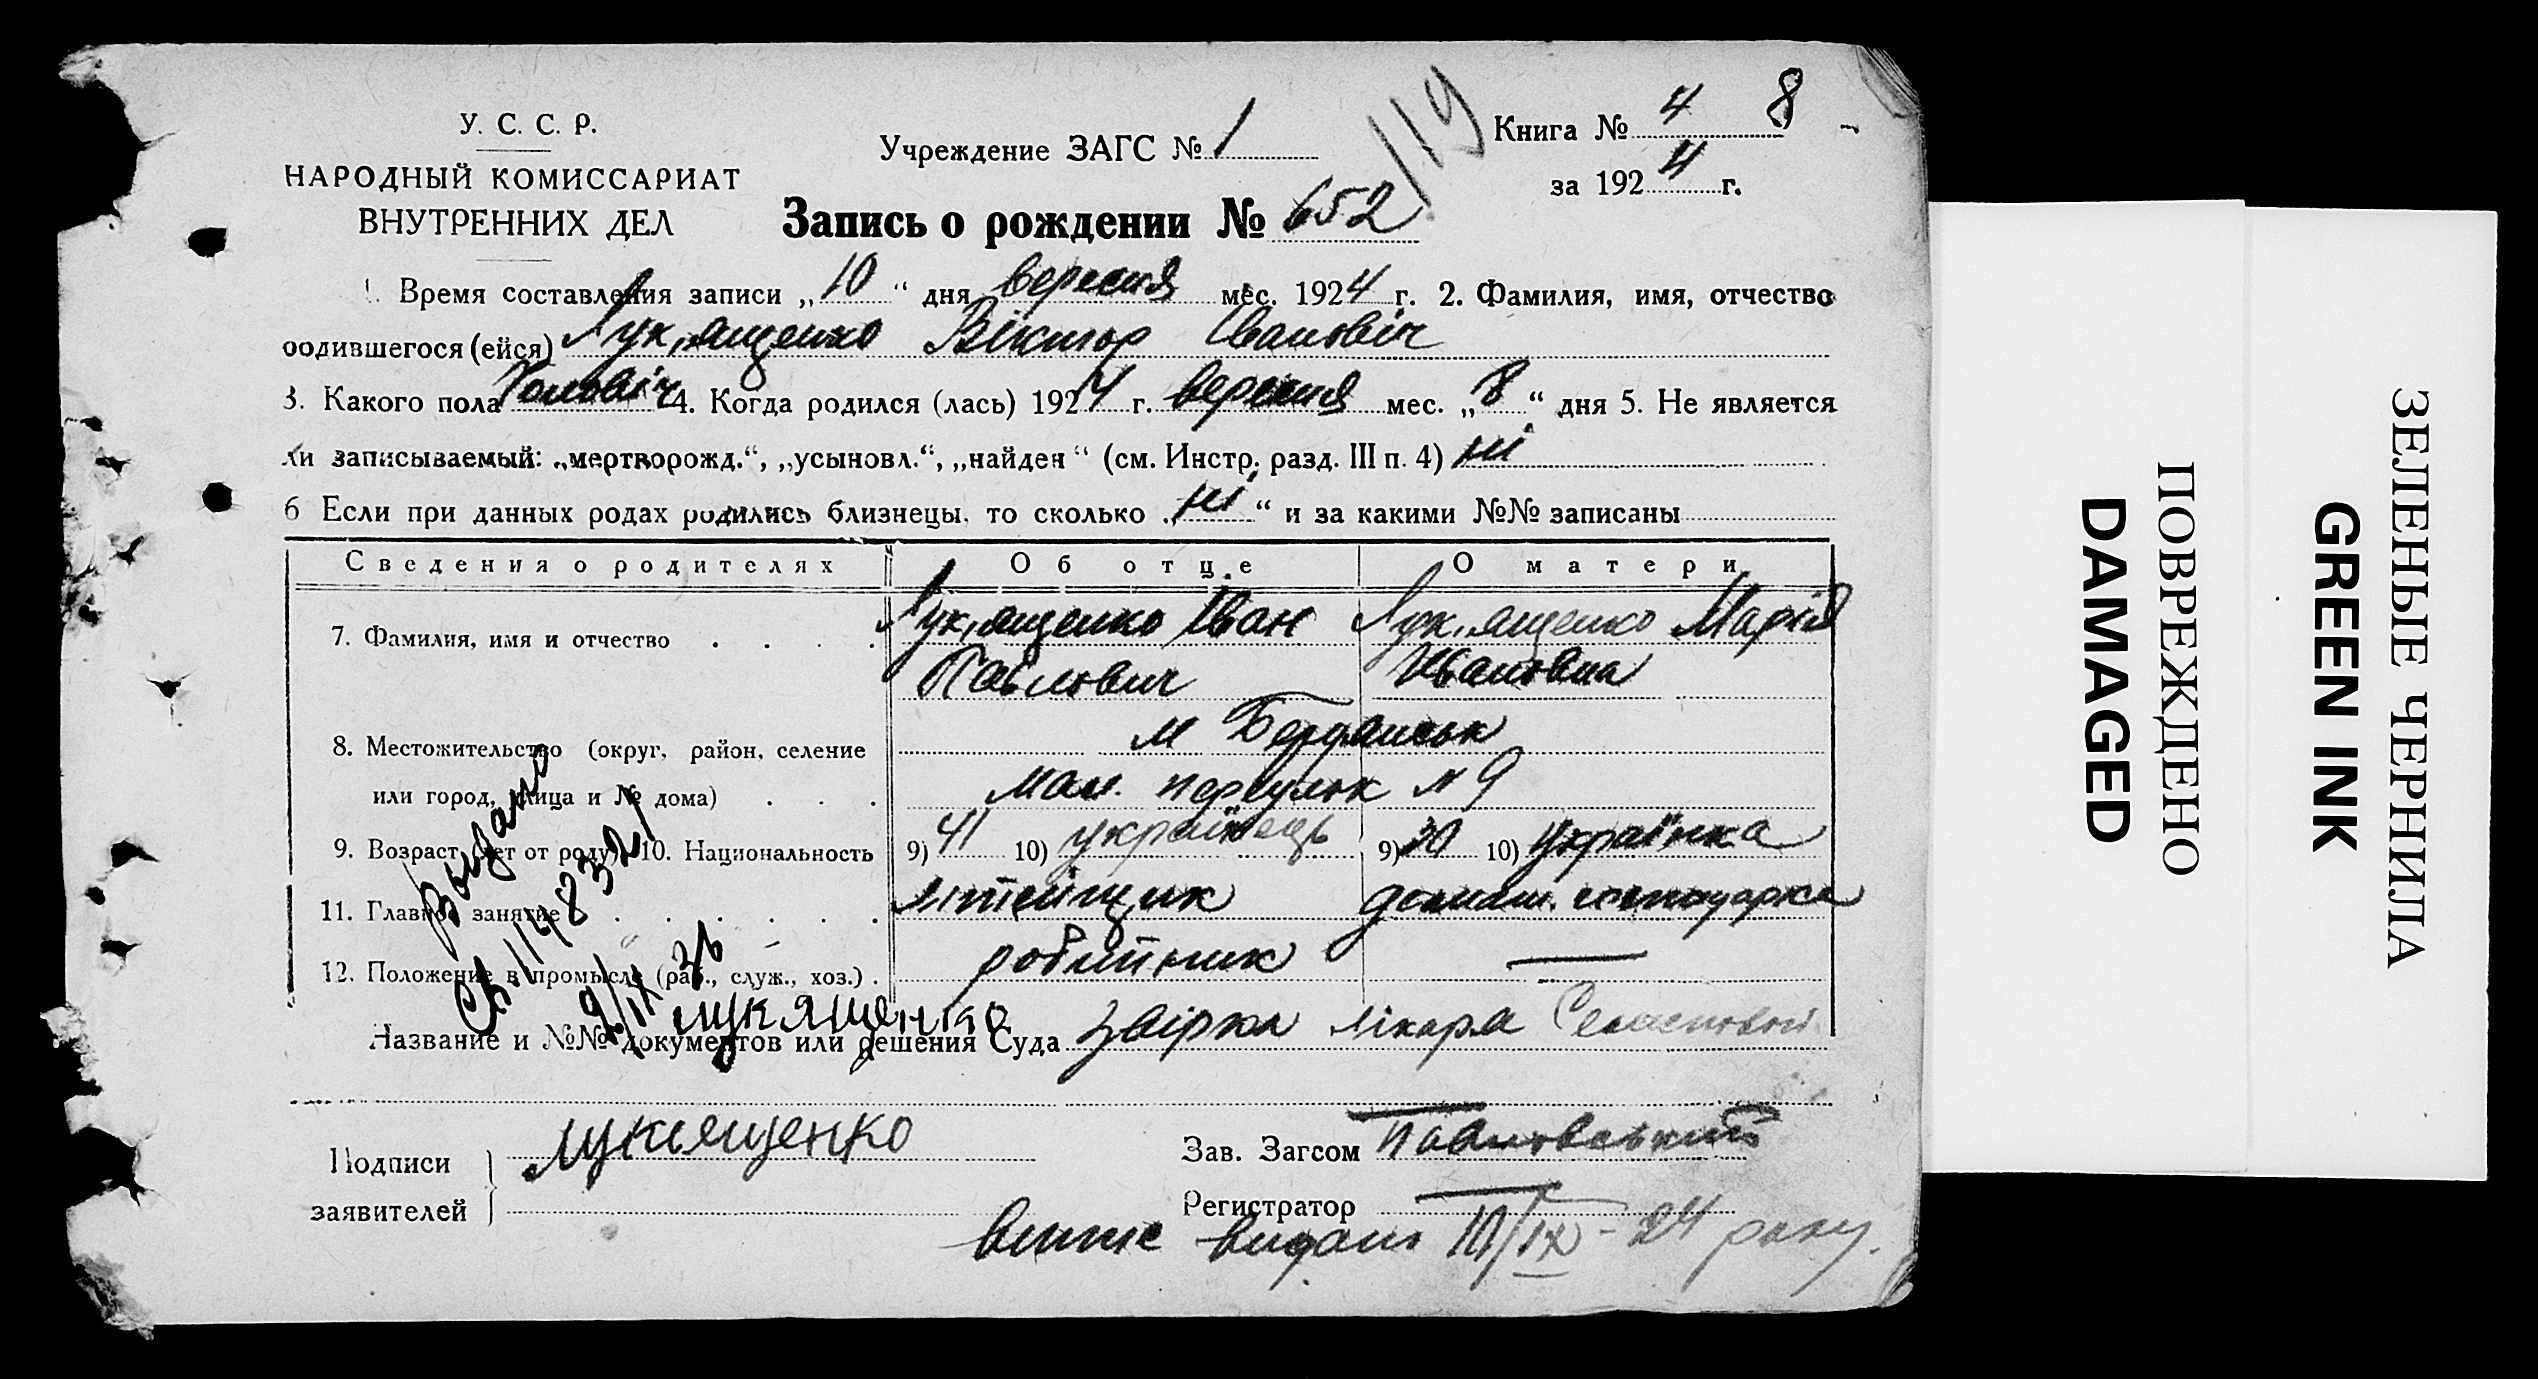 У. С. С. Р.
НАРОДНЫЙ КОМИССАРИАТ
ВНУТРЕННИХ ДЕЛ
Учреждение ЗАГС № 1
119
Книга № 4 8
за 1924 г.
Запись о рождении № 652
1. Время составления записи „10“ дня вересня мес. 1924 г. 2. Фамилия, имя, отчество
родившегося (ейся) Лук,ященко Віктор Іванович
3. Какого пола Чоловіч 4. Когда родился (лась) 1924 г. вересня мес. „8“ дня 5. Не является
ли записываемый: „мертворожд.“, „усыновл.“, „найден“ (см. Инстр. разд. III п. 4) ні
6 Если при данных родах родились близнецы, то сколько „ні“ и за какими №№ записаны
Сведения о родителях Об отце О матери
7. Фамилия, имя и отчество . . . . Лук,ященко Іван Лук,ященко Марія
Павлович Ивановна
8. Местожительство (округ, район, селение м Бердянськ
или город, улица и № дома) . . . переулок № 9
9. Возраст (лет от роду) 10. Национальность 9) 41 10) українець 9) 30 10) українка
11. Главное занятие . . . . . . литейщик домаш. господарка
12. Положение в промысле (раб., служ., хоз.) . робитник —
Выдано
Св. 1148321
9/IX 36
Лукященко
Название и №№ документов или решения Суда лікаря
Подписи
заявителей
Лукященко
Зав. Загсом Павловський
Регистратор
видано 10/IX - 24 року.
ПОВРЕЖДЕНО
DAMAGED
ЗЕЛЕНЫЕ ЧЕРНИЛА
GREEN INK